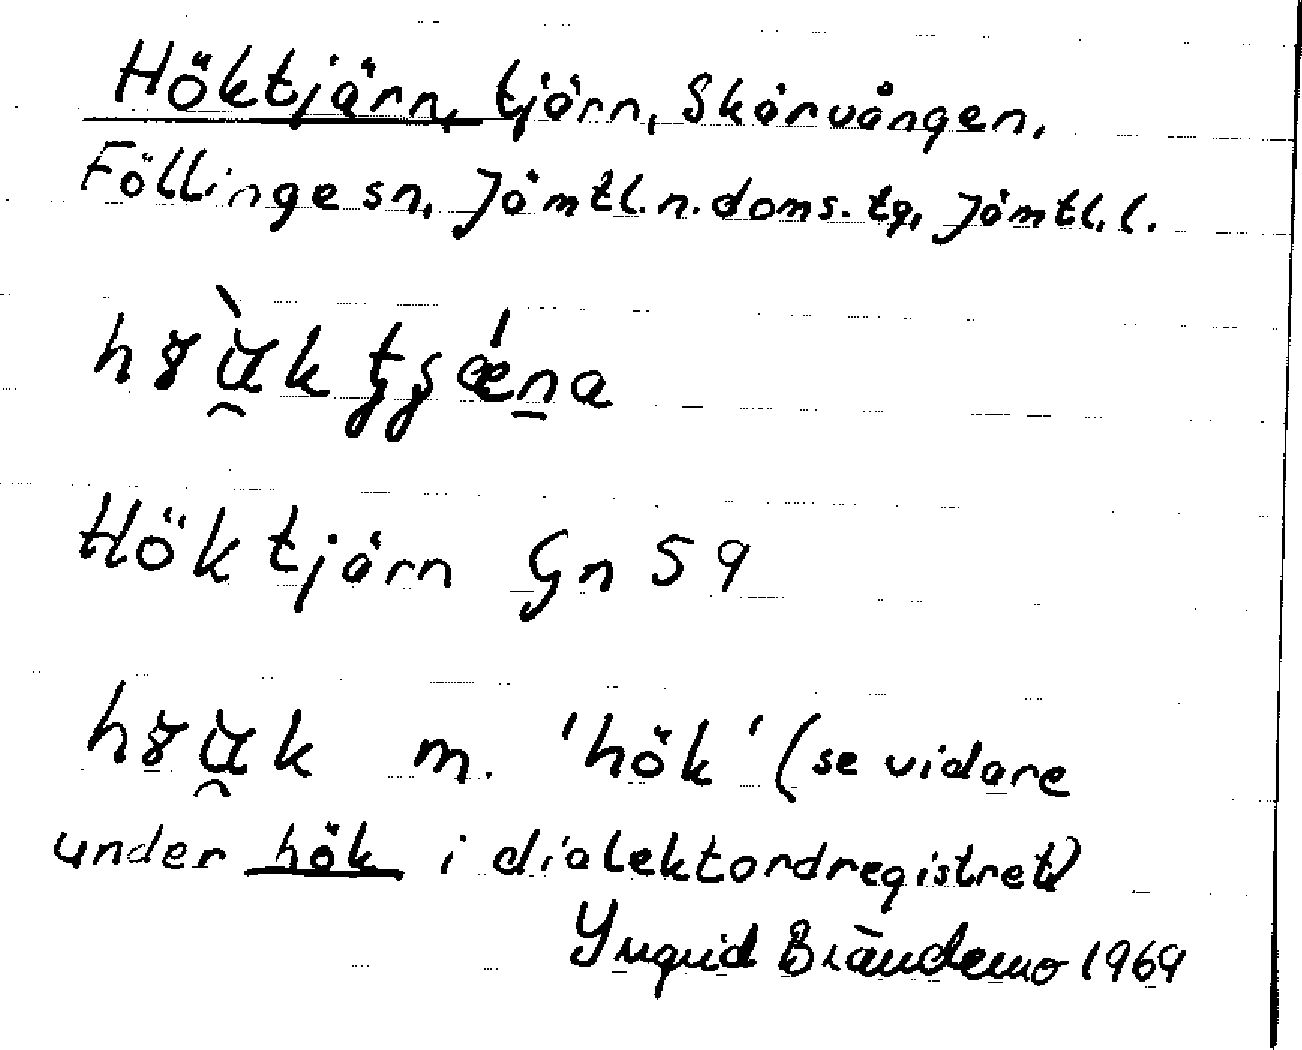 Höktjärn, tjärn, Skärvången,
Föllinge sn, Jämtl. n. doms. tg, Jämtl. l.
Höktjärn Gn 59
m. 'hök' (se vidare
under hök i dialektordregistret)
Yngrid Brändemo 1969